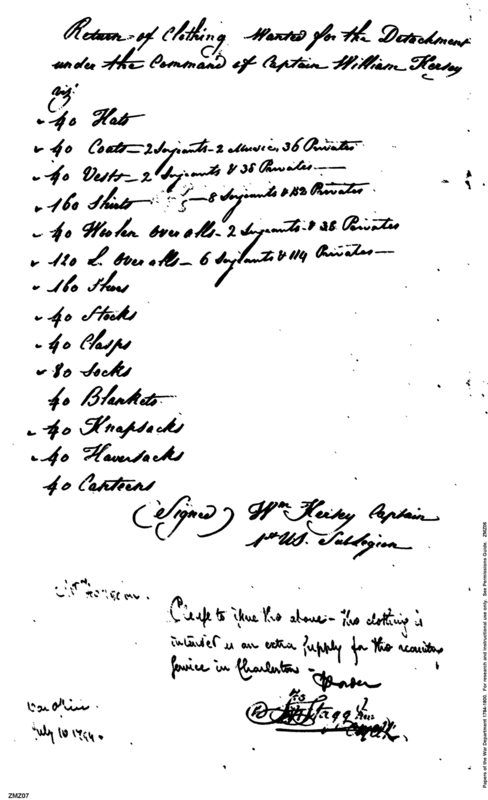 Return of Clothing Wanted for the Detachment
under the Command of Captain William Kersey
viz
40 Hats
40 Coats – 2 Serjants – 2 Music, 36 Privates
40 Vests – 2 Serjants & 38 Privates –
160 Shirts – 8 Serjants & 152 Privates
40 Woolen Overalls – 2 Serjants & 38 Privates
120 L. Overalls – 6 Serjants & 114 Privates –
160 Shoes
40 Stocks
40 Clasps
80 Socks
40 Blankets
40 Knapsacks
40 Haversacks
40 Canteens
(Signed) Wm Kersey Captain
1st US. Sublegion
Please to issue the above – this clothing is
intended as an extra supply for the recruiting
Service in Charleston –
Stagg
War Office
July 10 1794.
ZMZ07
Papers of the War Department 1784-1800. For research and instructional use only. See Permissions Guide. ZMZ06